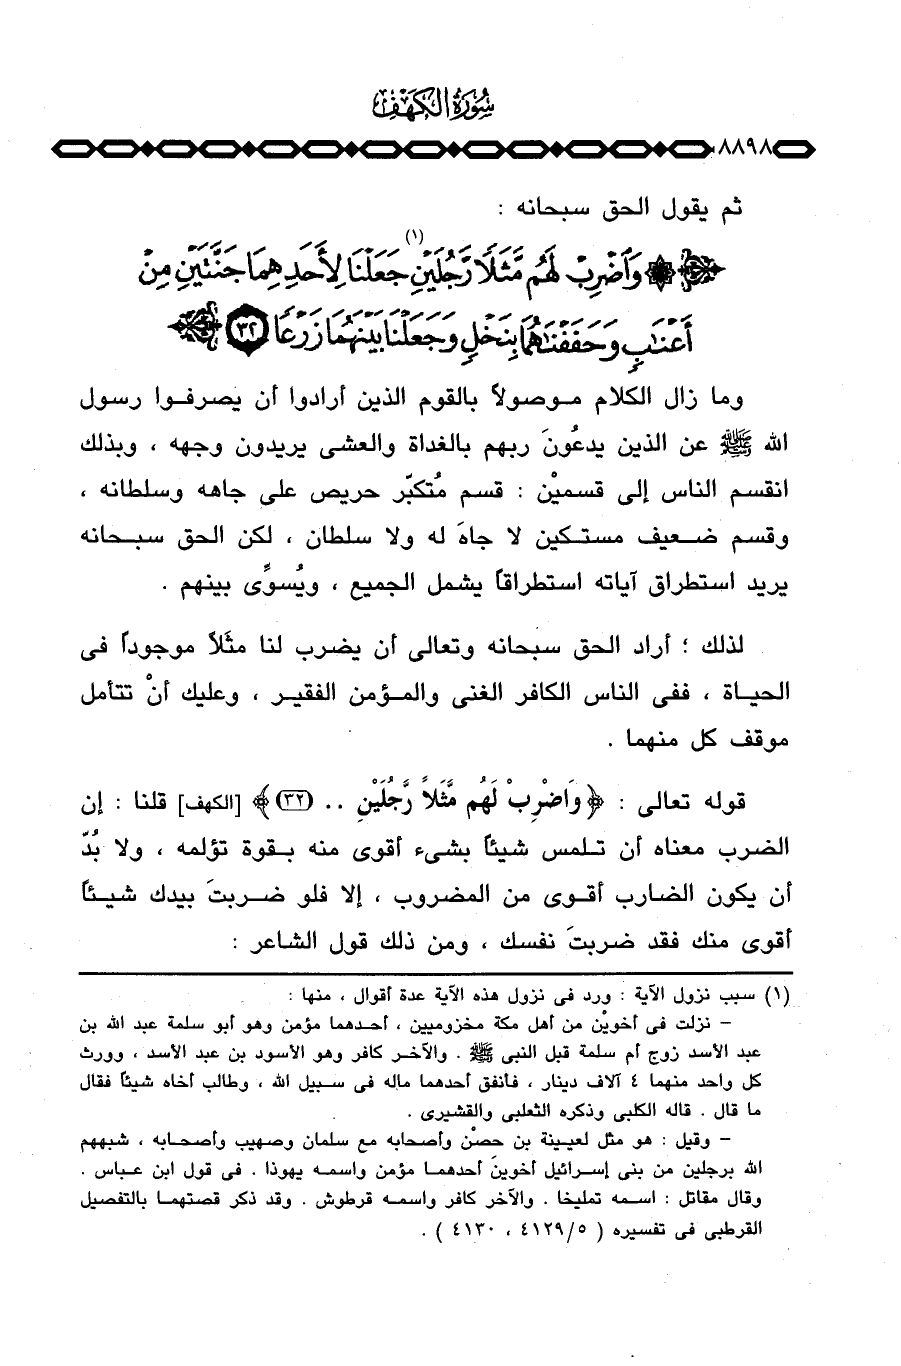 سورة الكهف
٨٨٩٨
ثم يقول الحق سبحانه :
۞ وَاضْرِبْ لَهُم مَّثَلًا رَّجُلَيْنِ (١) جَعَلْنَا لِأَحَدِهِمَا جَنَّتَيْنِ مِنْ
أَعْنَابٍ وَحَفَفْنَاهُمَا بِنَخْلٍ وَجَعَلْنَا بَيْنَهُمَا زَرْعًا ٣٢
وما زال الكلام موصولاً بالقوم الذين أرادوا أن يصرفوا رسول
الله ﷺ عن الذين يدعُونَ ربهم بالغداة والعشى يريدون وجهه ، وبذلك
انقسم الناس إلى قسميْن : قسم مُتكبّر حريص على جاهه وسلطانه ،
وقسم ضعيف مستكين لا جاهَ له ولا سلطان ، لكن الحق سبحانه
يريد استطراق آياته استطراقاً يشمل الجميع ، ويُسوِّى بينهم .
لذلك ؛ أراد الحق سبحانه وتعالى أن يضرب لنا مثَلاً موجوداً فى
الحياة ، ففى الناس الكافر الغنى والمؤمن الفقير ، وعليك أنْ تتأمل
موقف كل منهما .
قوله تعالى : ﴿ وَاضْرِبْ لَهُم مَّثَلاً رَّجُلَيْنِ .. (٣٢) ﴾ [الكهف] قلنا : إن
الضرب معناه أن تلمس شيئاً بشىء أقوى منه بقوة تؤلمه ، ولا بُدّ
أن يكون الضارب أقوى من المضروب ، إلا فلو ضربتَ بيدك شيئاً
أقوى منك فقد ضربتَ نفسك ، ومن ذلك قول الشاعر :
(١) سبب نزول الآية : ورد فى نزول هذه الآية عدة أقوال ، منها :
– نزلت فى أخويْن من أهل مكة مخزوميين ، أحدهما مؤمن وهو أبو سلمة عبد الله بن
عبد الأسد زوج أم سلمة قبل النبى ﷺ . والآخر كافر وهو الأسود بن عبد الأسد ، وورث
كل واحد منهما ٤ آلاف دينار ، فأنفق أحدهما ماله فى سبيل الله ، وطالب أخاه شيئاً فقال
ما قال . قاله الكلبى وذكره الثعلبى والقشيرى .
– وقيل : هو مثل لعيينة بن حصْن وأصحابه مع سلمان وصهيب وأصحابه ، شبههم
الله برجلين من بنى إسرائيل أخوينَ أحدهما مؤمن واسمه يهوذا . فى قول ابن عباس .
وقال مقاتل : اسمه تمليخا . والآخر كافر واسمه قرطوش . وقد ذكر قصتهما بالتفصيل
القرطبى فى تفسيره ( ٤١٢٩/٥ ، ٤١٣٠ ) .